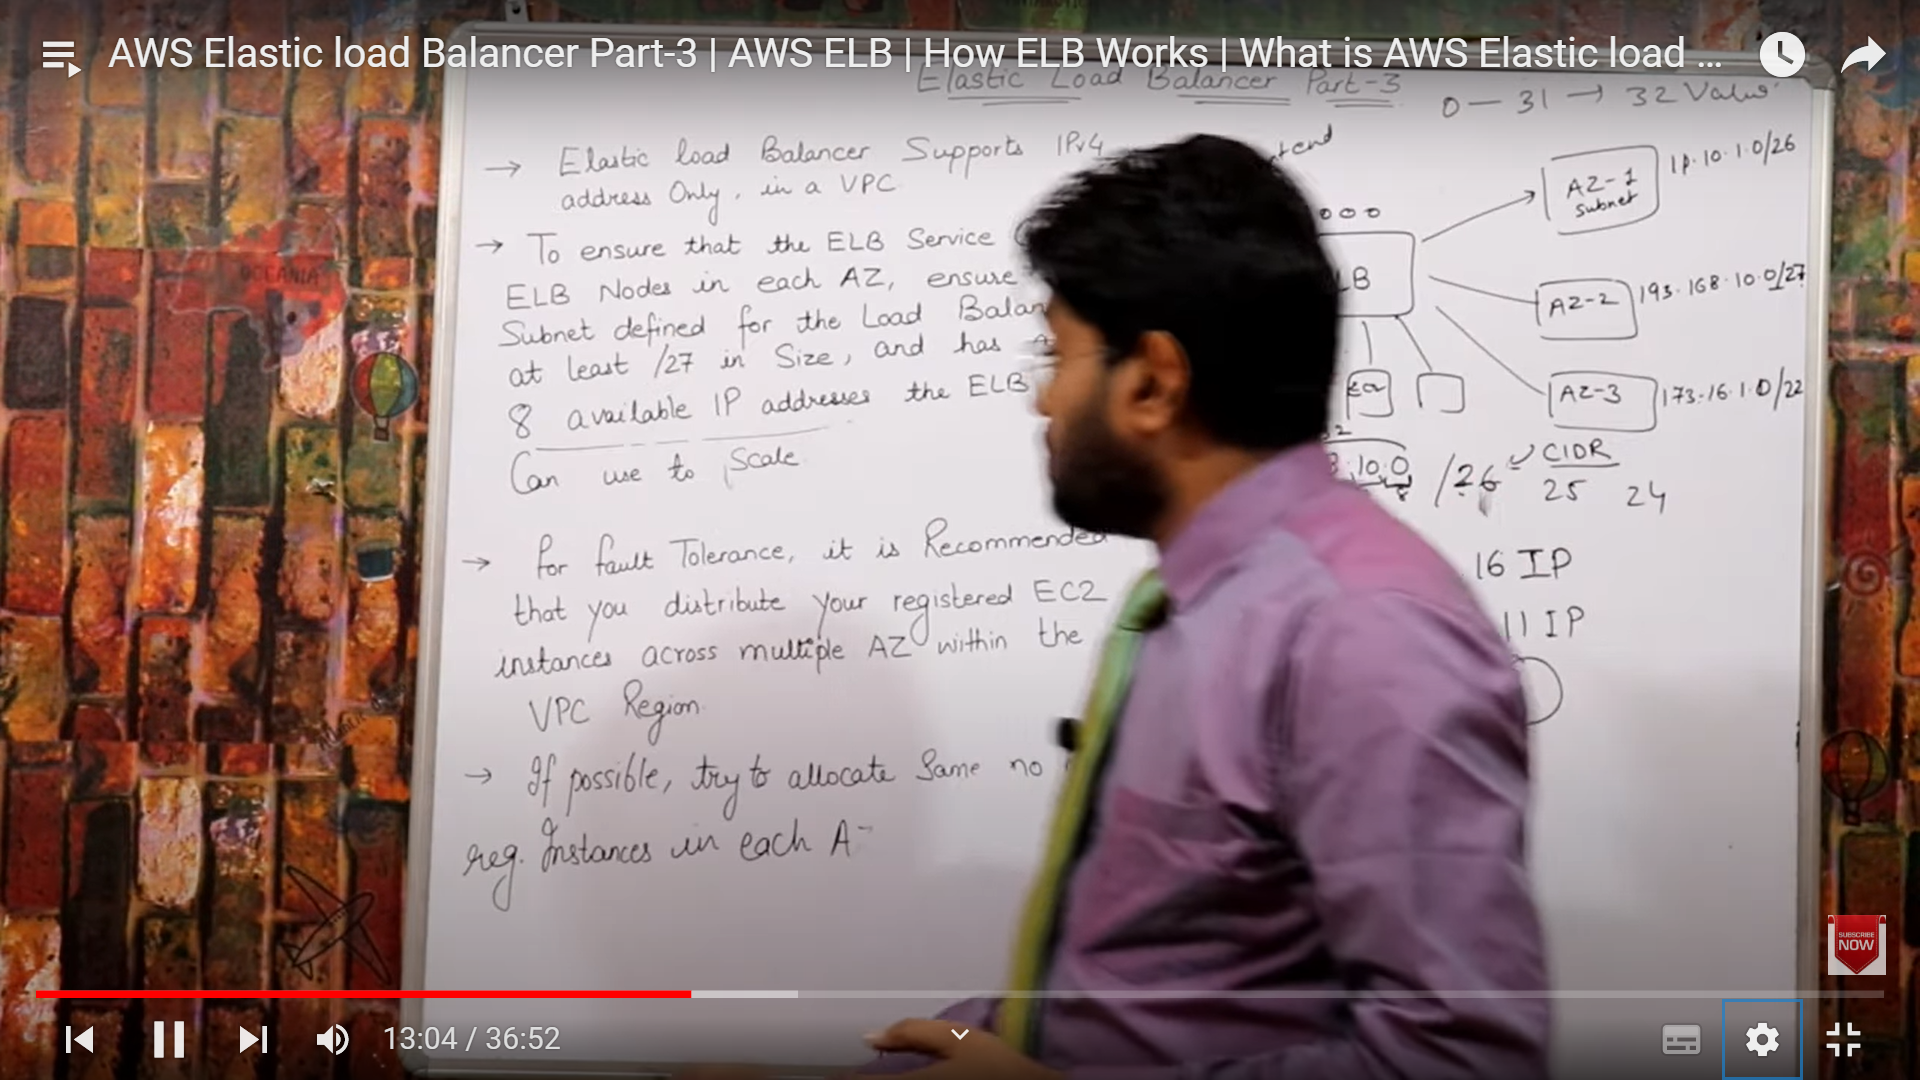 AWS Elastic load Balancer Part-3 | AWS ELB | How ELB Works | What is AWS Elastic load ...
Elastic Load Balancer Part-3
0 — 31 → 32 Value
→ Elastic load Balancer Supports IPv4
address Only, in a VPC
→ To ensure that the ELB Service
ELB Nodes in each AZ, ensure
Subnet defined for the Load Balan
at least /27 in Size, and has
8 available IP addresses the ELB
Can use to Scale
→ For fault Tolerance, it is Recommended
that you distribute your registered EC2
instances across multiple AZ within the
VPC Region
→ If possible, try to allocate Same no
reg. Instances in each A
tend
LB
AZ-1
Subnet
10.1.0/26
AZ-2 193.168.10.0/27
AZ-3 173.16.1.0/22
.10.0 /26 CIDR
8
25 24
16 IP
11 IP
OCEANIA
SUBSCRIBE
NOW
13:04 / 36:52